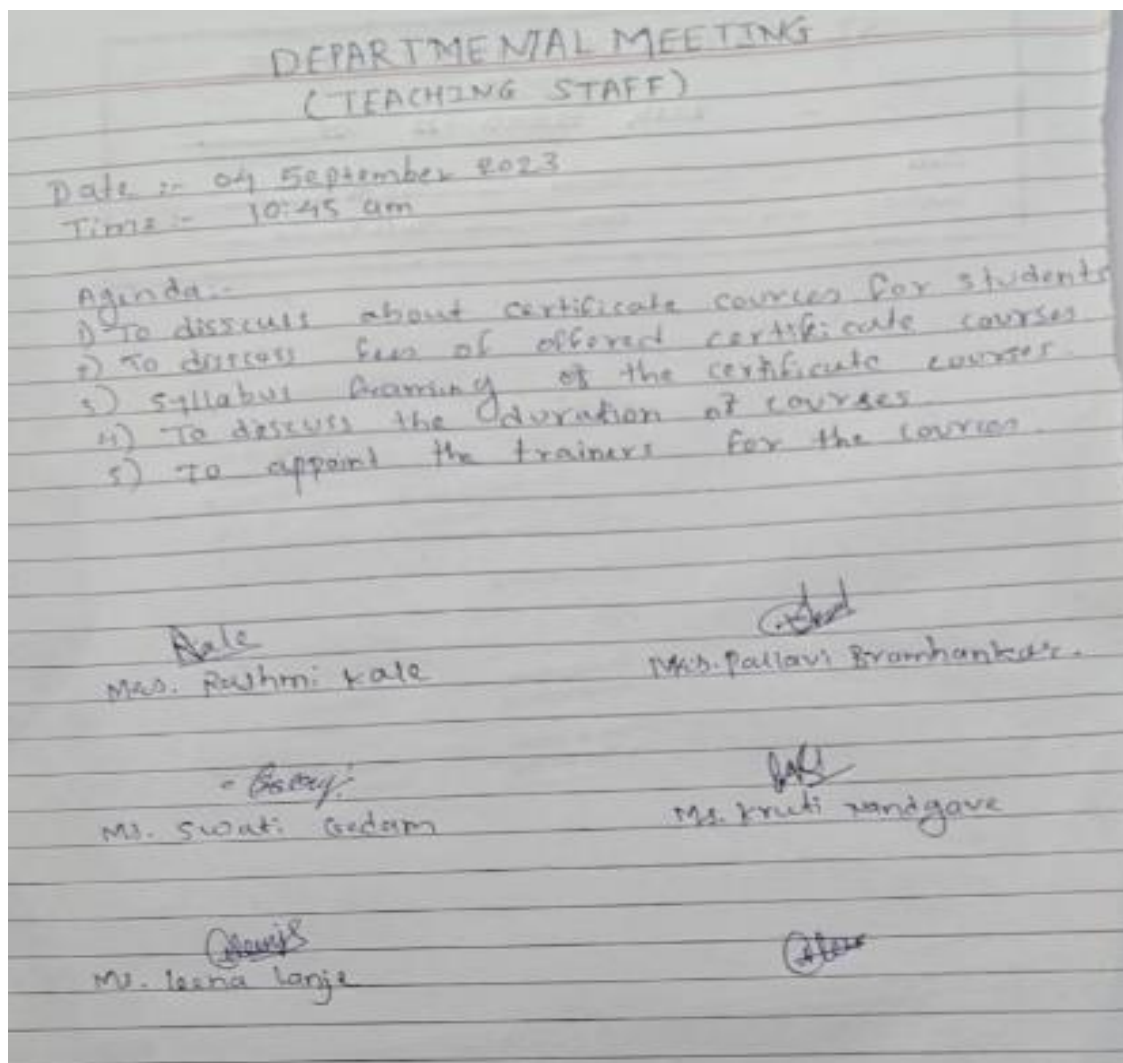 DEPARTMENTAL MEETING
(TEACHING STAFF)
Date :- 04 September 2023
Time :- 10:45 am
Agenda:-
1) To disscuss about certificate courses for students
2) To discuss fees of offered certificate courses
3) Syllabus framing of the certificate courses.
4) To discuss the duration of courses.
5) To appoint the trainers for the courses.
Kale
Mrs. Rashmi Kale Mrs. Pallavi Bramhankar.
Ms. Swati Gedam Ms. Kruti Nandgave
Ms. Leena Lanje